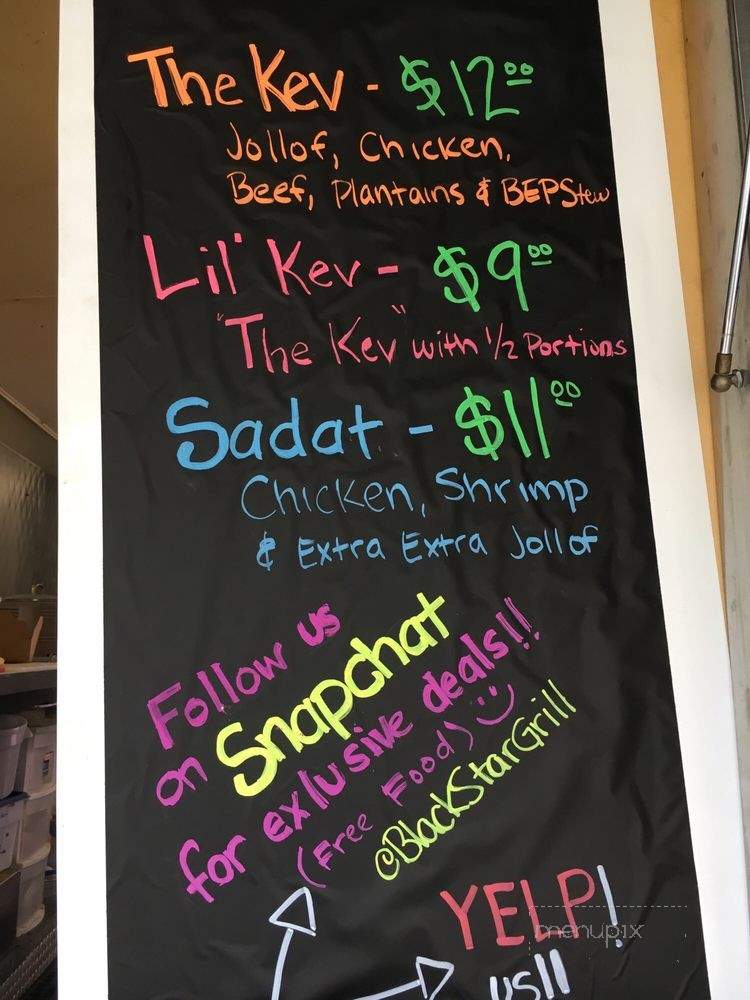 The Kev - $12.00
Jollof, Chicken,
Beef, Plantains & BEPStew
Lil' Kev - $9.00
"The Kev" with 1/2 Portions
Sadat - $11.00
Chicken, Shrimp
& Extra Extra Jollof
Follow us
on Snapchat
for exlusive deals!!
(Free Food) :)
@BlackStarGrill
YELP!
us!!
menupix